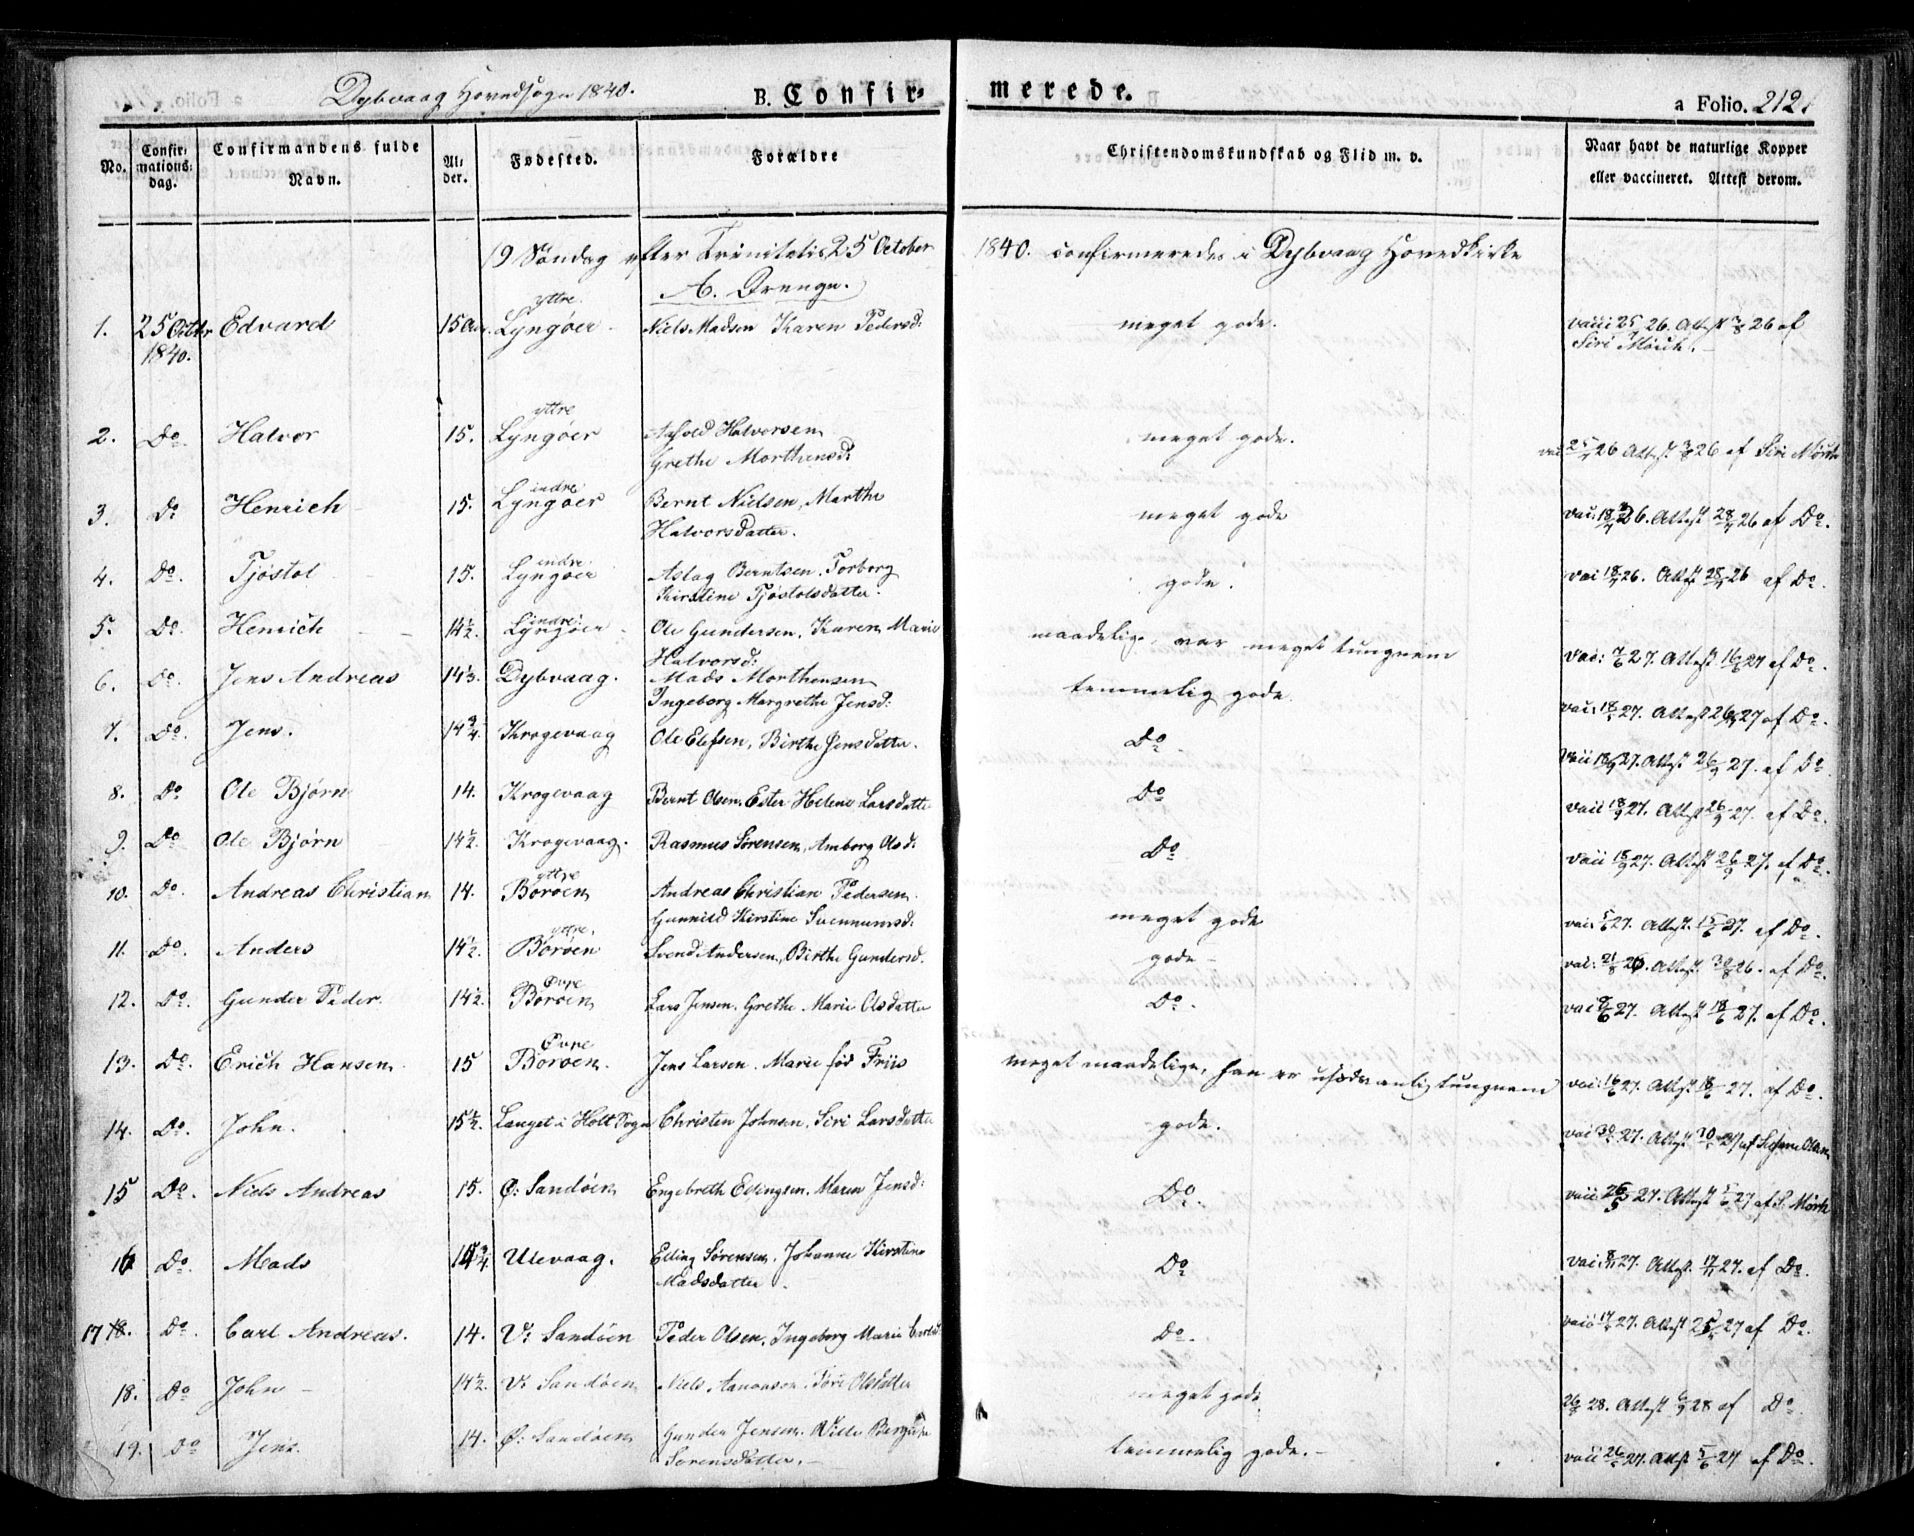 Dybvaag Hovedsogn 1840.
B. Confir-
merede.
a Folio. 212.
No.
Confir-
mations-
dag.
Confirmandens fulde
Navn.
Al-
der.
Fødested.
Forældre
Christendomskundskab og Flid m. v.
Naar havt de naturlige Kopper
eller vaccineret. Attest derom.
19 Søndag efter Trinitatis 25 October 1840. confirmeredes i Dybvaag Hovedkirke
A. Drenge.
1. 25 Octbr 1840. Edvard 15 Aar yttre Lyngøer Niels Madsen Karen Pedersd: meget gode. 26. Attest 26 af Siri Mørch.
2. Do. Halvor 15. yttre Lyngøer Halvorsen Grethe Morthensd: meget gode. 26 Attest 26 af Siri Mørch
3. Do Henrich 15. indre Lyngøer Bernt Nielsen, Marthe Halvorsdatter. meget gode 26. Attest 26 af Do.
4. Do. Tjøstol 15. indre Lyngøer Aslag Berntsen. Torborg Kirstine Tjøstolsdatter. gode. 26. Attest 26 af Do.
5. Do. Henrich 14½. indre Lyngøer Ole Gundersen. Karen Marie Halvorsd: maadelige, var meget tungnem 27. Attest 27 af Do.
6. Do. Jens Andreas Dybvaag. Mads Morthensen Ingeborg Margrethe Jensd: temmelig gode. 27. Attest 27 af Do.
7. Do. Jens. 14¾ Krogevaag Ole Elefsen, Birthe Jensdatter. Do. 27. Attest 27. af Do
8. Do Ole Bjørn 14. Krogevaag Bernt Olsen, Ester Helene Larsdatter Do 27. Attest 27. af Do.
9. Do Ole Bjørn 14½. Krogevaag. Rasmus Sørensen, Amborg Olsd: Do 27. Attest 27. af Do.
10. Do. Andreas Christian 14. yttre Borøen Andreas Christian Pedersen. Gunnild Kirstine Svennumsd: meget gode 27. Attest. 27. af Do.
11. Do. Anders 14½. yttre Borøen Svend Andersen, Birthe Gundersd. gode 26. Attest. 26. af Do.
12. Do. Gunder Peder. 14½. Øvre Borøen Lars Jensen, Grethe Marie Olsdatter Do. 27. Attest 27. af Do.
13. Do. Erich Hansen 15 Øvre Borøen. Jens Larsen. Marie fød Friis meget maadelige, han er usædvanlig tungnem 27. Attest 27. af Do.
14. Do. John. 15½. Langet i Holt Sogn Christen Johnsen, Siri Larsdatter gode. 27. Attest
15 Do. Niels Andreas 15. Ø: Sandøen Engebreth Ellingsen. Maren Jensd: Do. 27. Attest 27 af S. Mørch
16 Do. Mads Ulevaag. Elling Sørensen, Johanne Kirstine Madsdatter. Do 27. Attest. 27. af Do.
17 Do. Carl Andreas. 14. V: Sandøen Peder Olsen, Ingeborg Marie Do. 27. Attest 27 af Do.
18. Do John 14½. V: Sandøen Niels Aanonsen. Olsdatter meget gode 28. Attest 28 af Do.
19. Do Jens 14. Ø: Sandøen Gunder Jensen. Sørensdatter. temmelig gode. 27. Attest 27 af Do.